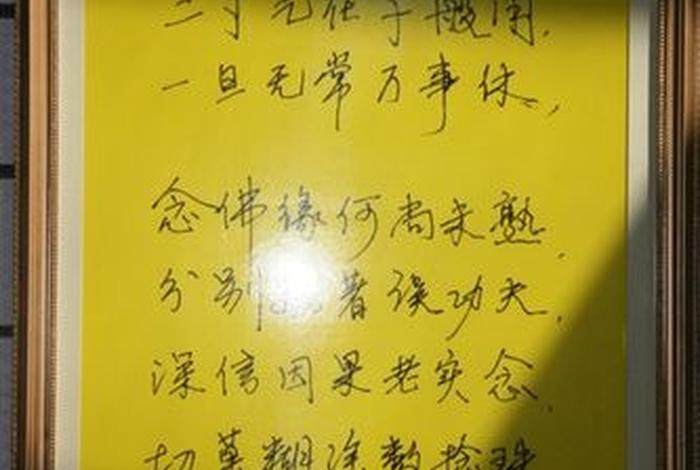 三寸气在千般用,
一旦无常万事休,
念佛缘何尚未熟,
分别 着误功夫,
深信因果老实念,
切莫糊涂数捻珠